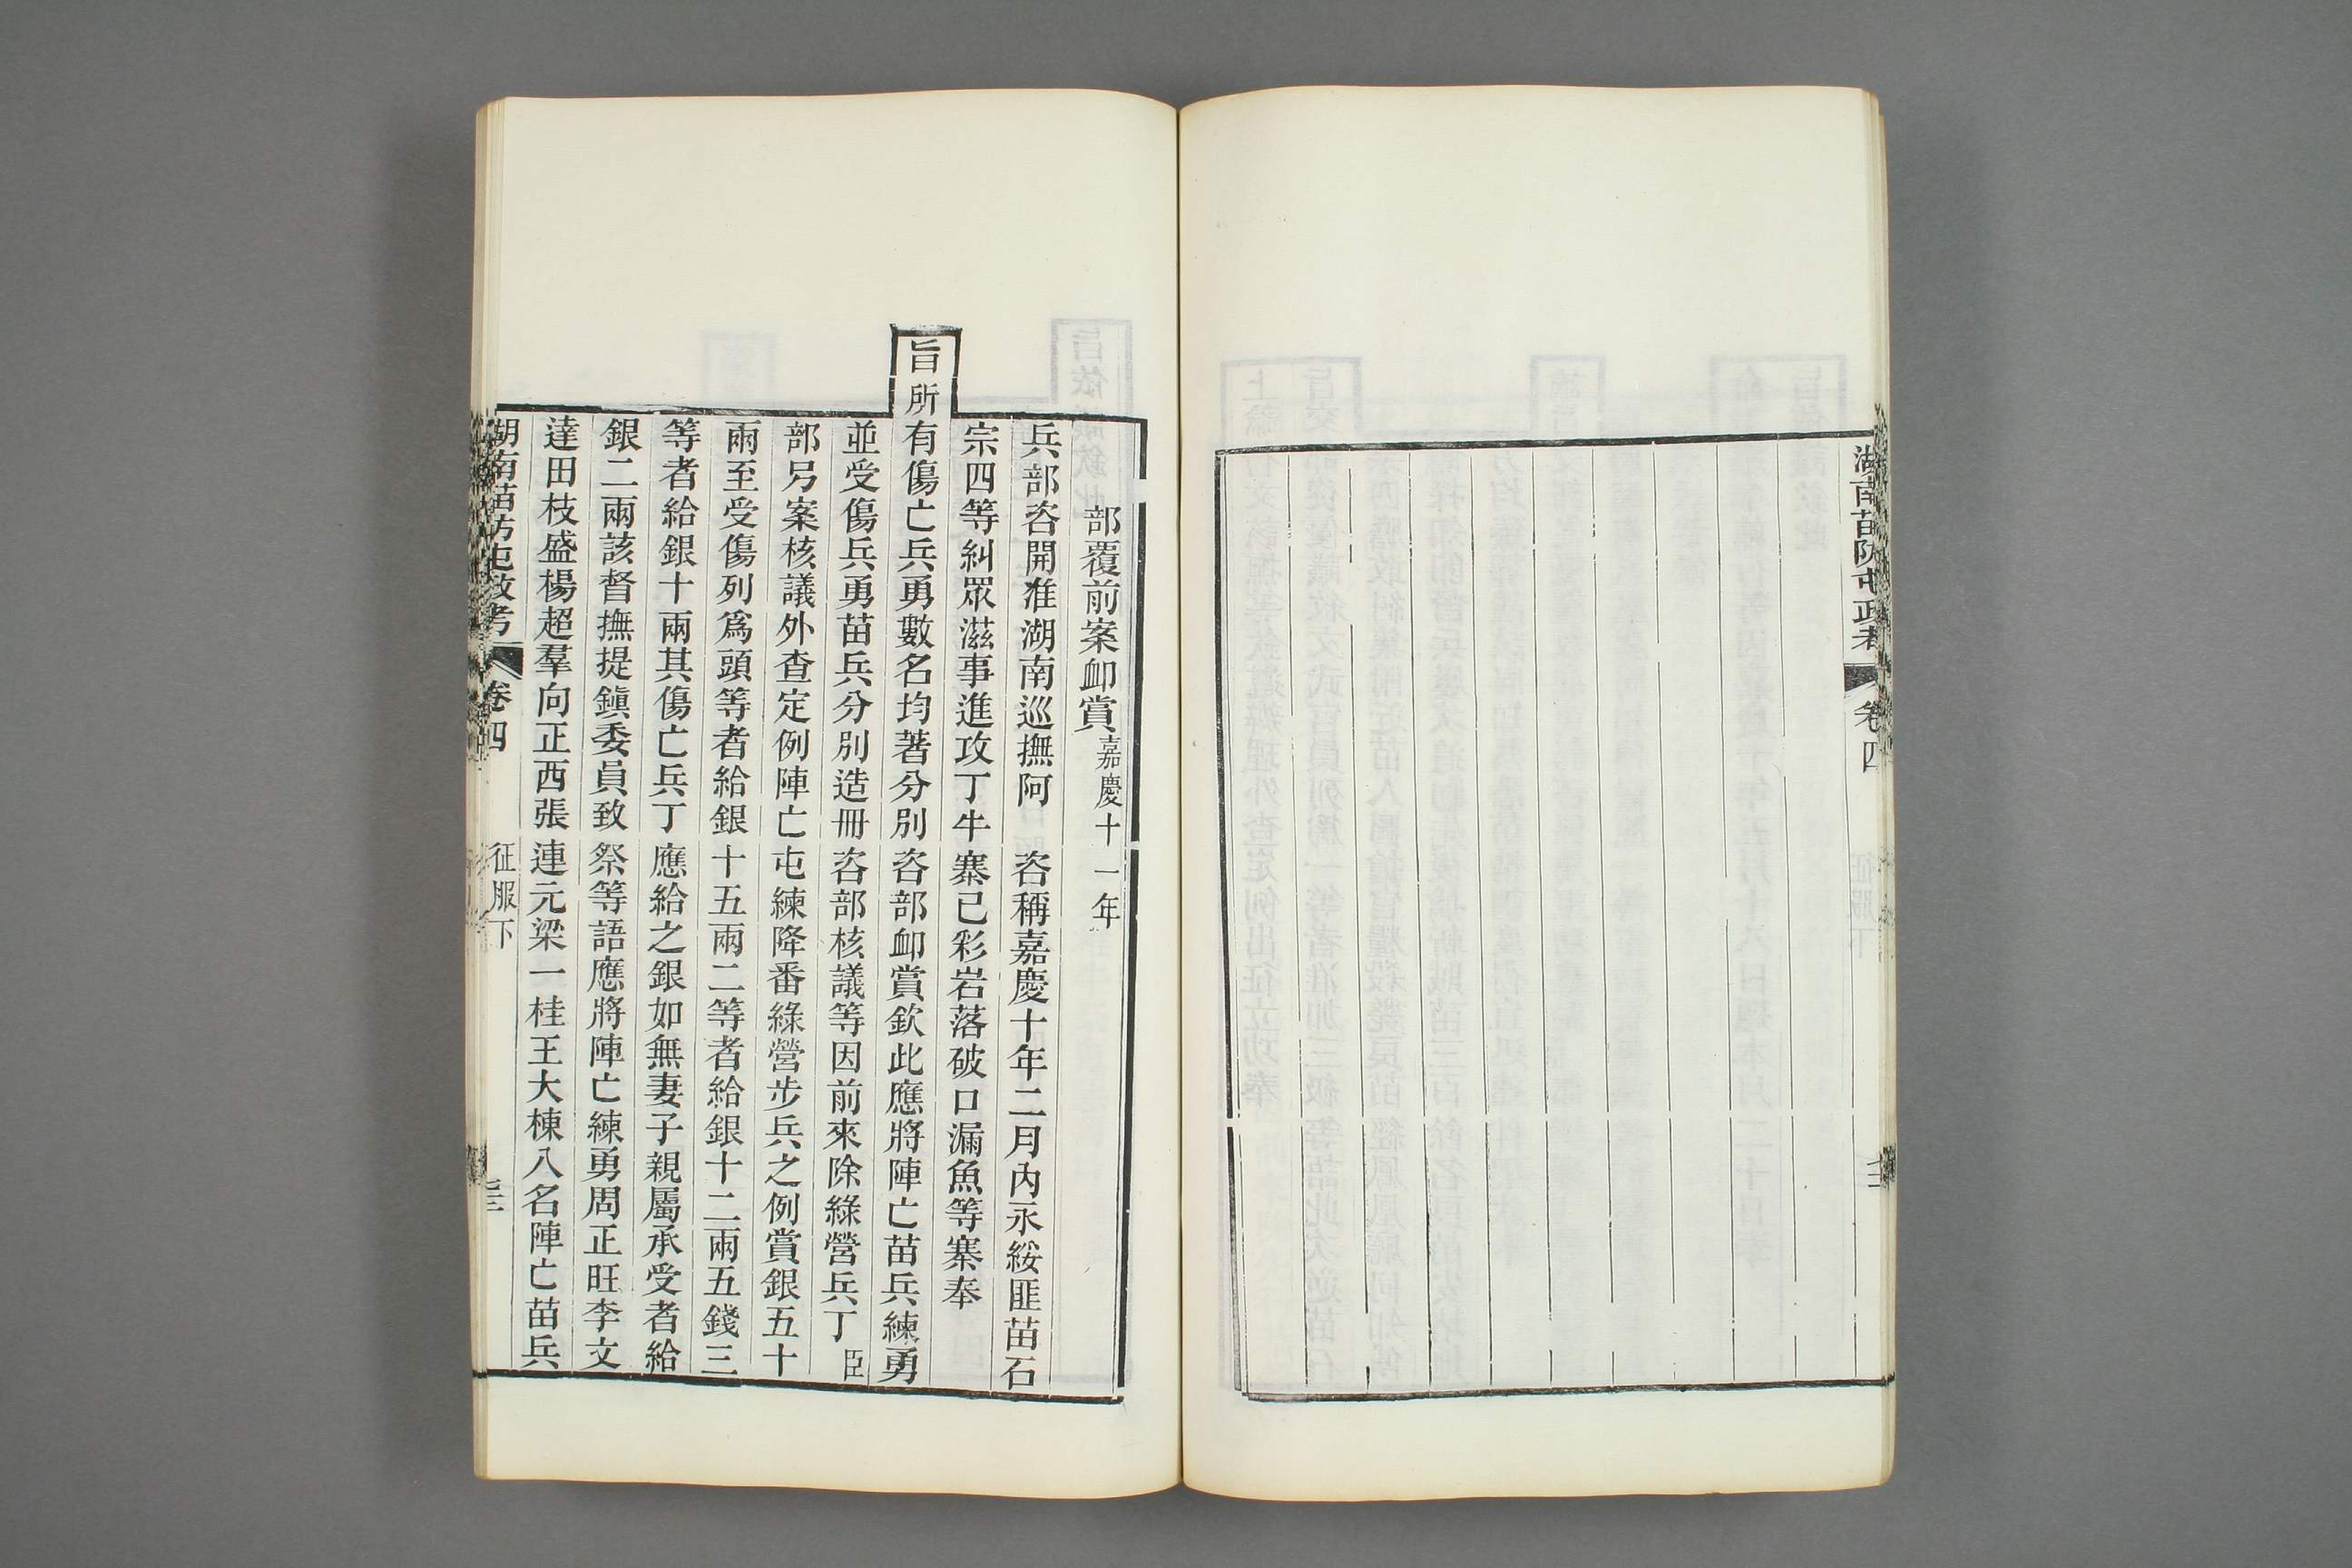 湖南苗防屯政考 卷四
部覆前案卹賞嘉慶十一年
兵部咨開准湖南巡撫阿 咨稱嘉慶十年二月內永綏匪苗石
宗四等糾眾滋事進攻丁牛寨已彩岩落破口漏魚等寨奉
旨所有傷亡兵勇數名均著分別咨部卹賞欽此應將陣亡苗兵練勇
並受傷兵勇苗兵分別造冊咨部核議等因前來除綠營兵丁臣
部另案核議外查定例陣亡屯練降番綠營步兵之例賞銀五十
兩至受傷列爲頭等者給銀十五兩二等者給銀十二兩五錢三
等者給銀十兩其傷亡兵丁應給之銀如無妻子親屬承受者給
銀二兩該督撫提鎮委員致祭等語應將陣亡練勇周正旺李文
達田枝盛楊超羣向正西張連元梁一桂王大棟八名陣亡苗兵
湖南苗防屯政考 卷四 征服下